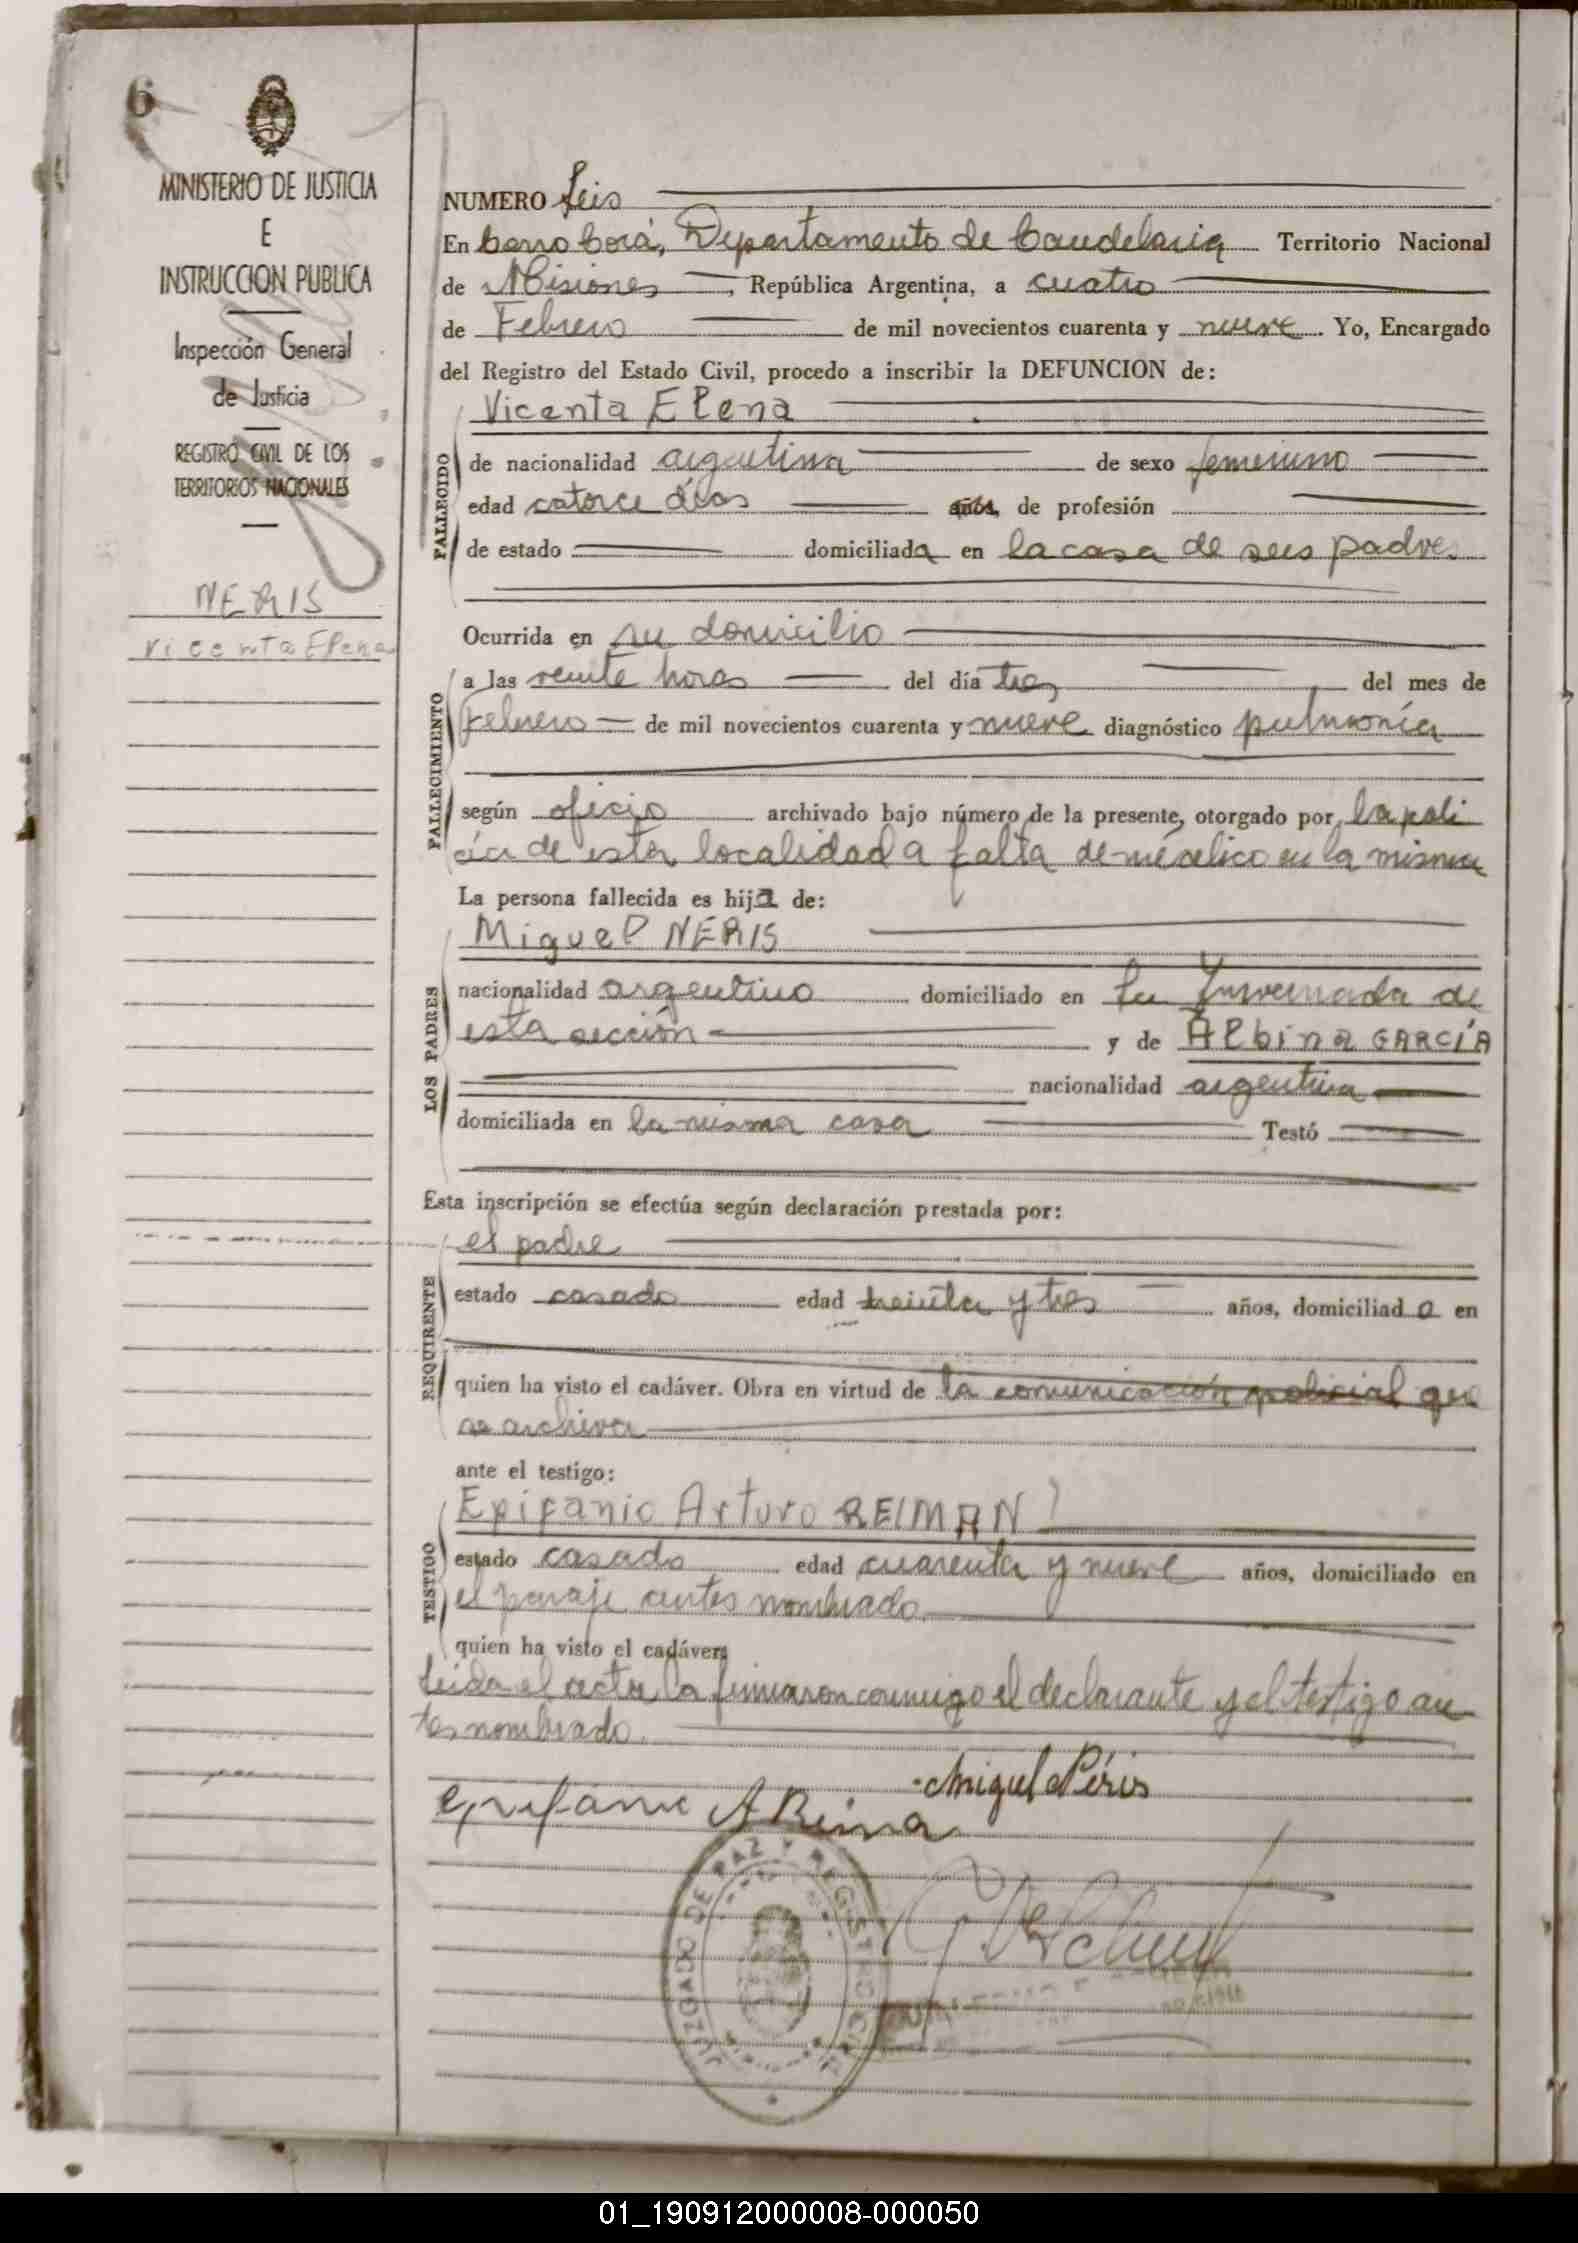 6
MINISTERIO DE JUSTICIA
E
INSTRUCCION PUBLICA
Inspección General
de Justicia
REGISTRO CIVIL DE LOS
TERRITORIOS NACIONALES
NERIS
Vicenta Elena
NUMERO Seis
En Cerro Corá, Departamento de Candelaria Territorio Nacional
de Misiones, República Argentina, a cuatro
de Febrero de mil novecientos cuarenta y nueve. Yo, Encargado
del Registro del Estado Civil, procedo a inscribir la DEFUNCION de:
Vicenta Elena
FALLECIDO
de nacionalidad argentina de sexo femenino
edad catorce días años, de profesión
de estado domiciliada en la casa de sus padres
Ocurrida en su domicilio
FALLECIMIENTO
a las veinte horas del día tres del mes de
Febrero de mil novecientos cuarenta y nueve diagnóstico pulmonía
según oficio archivado bajo número de la presente, otorgado por la poli
cía de esta localidad a falta de médico en la misma
La persona fallecida es hija de:
Miguel NERIS
LOS PADRES
nacionalidad argentino domiciliado en La Invernada de
esta sección y de Albina GARCÍA
nacionalidad argentina
domiciliada en la misma casa Testó
Esta inscripción se efectúa según declaración prestada por:
el padre
REQUIRENTE
estado casado edad treinta y tres años, domiciliado en
quien ha visto el cadáver. Obra en virtud de la comunicación policial que
se archiva
ante el testigo:
Epifanio Arturo REIMAN
TESTIGO
estado casado edad cuarenta y nueve años, domiciliado en
el paraje antes nombrado.
quien ha visto el cadáver;
Leída el acta la firmaron conmigo el declarante y el testigo an
tes nombrado.
Miguel Néris
Epifanio A Reima
JUZGADO DE PAZ Y REGISTRO CIVIL
01_190912000008-000050